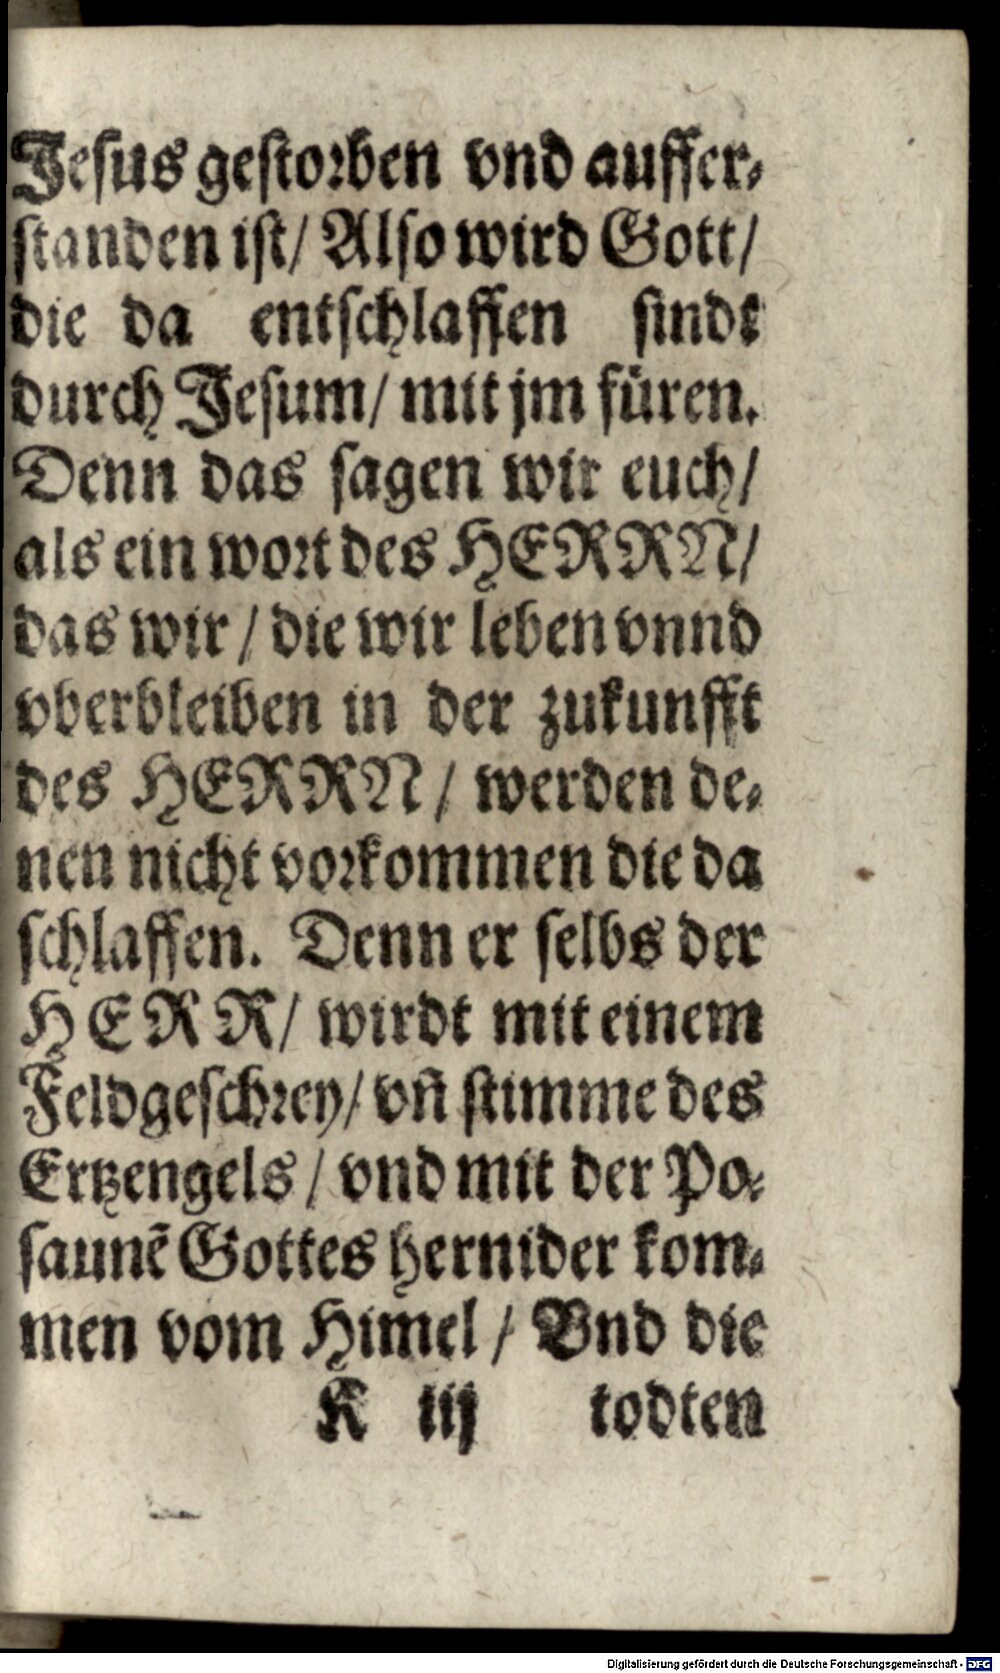 Jesus gestorben vnd auffer-
standen ist/ Also wird Gott/
die da entschlaffen sindt
durch Jesum/ mit jm füren.
Denn das sagen wir euch/
als ein wort des HERRN/
das wir / die wir leben vnnd
vberbleiben in der zukunfft
des HERRN / werden de-
nen nicht vorkommen die da
schlaffen. Denn er selbs der
HERR/ wirdt mit einem
Feldgeschrey/ vñ stimme des
Ertzengels / vnd mit der Po-
saunē Gottes hernider kom-
men vom Himel / Vnd die
K iij todten
Digitalisierung gefördert durch die Deutsche Forschungsgemeinschaft - DFG